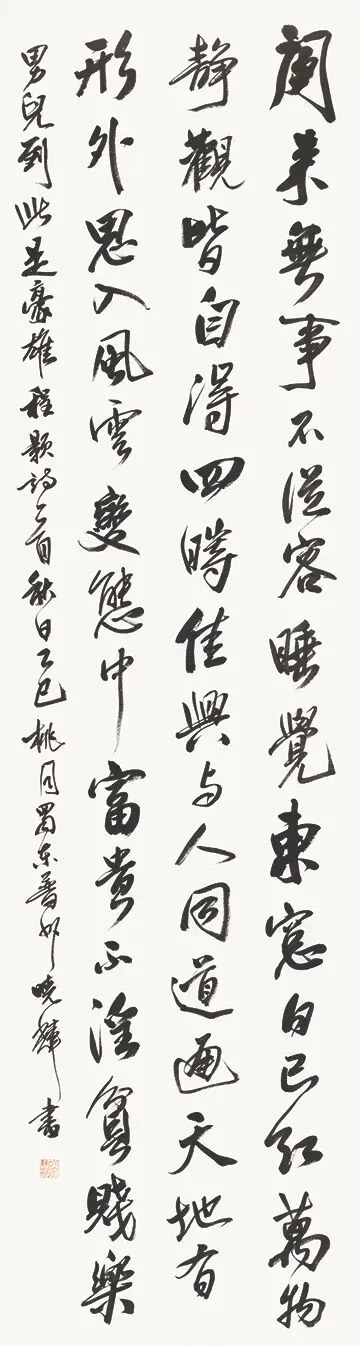 閑来無事不從容睡覺東窓日已红萬物
静觀皆自得四時佳興与人同道通天地有
形外思入風雲變態中富貴不淫貧賤樂
男兒到此是豪雄程颢詩首秋日乙巳桃月蜀东普州曉輝書